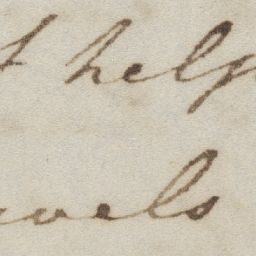 t help
vels